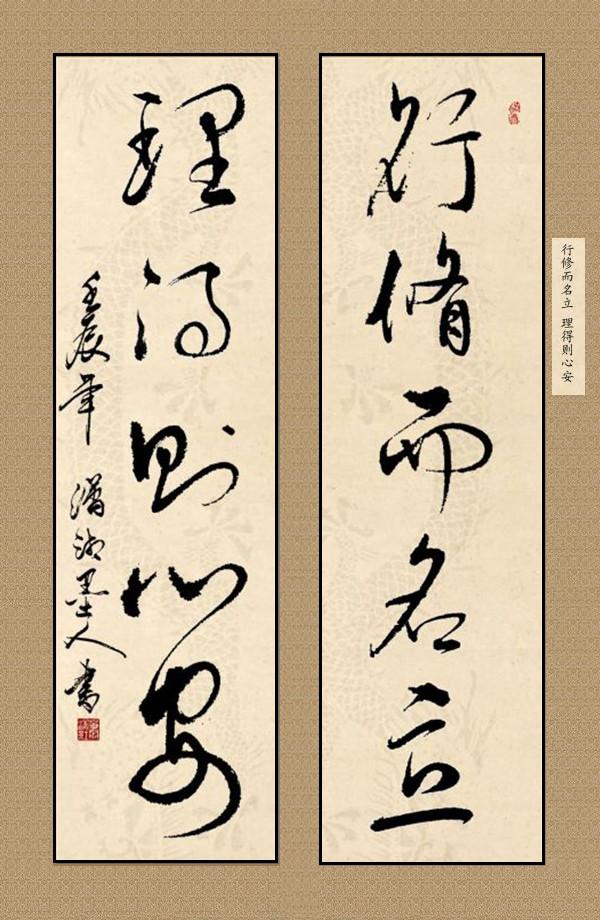 行修而名立
理得则心安
壬辰年 潇湘墨人书
行修而名立 理得则心安